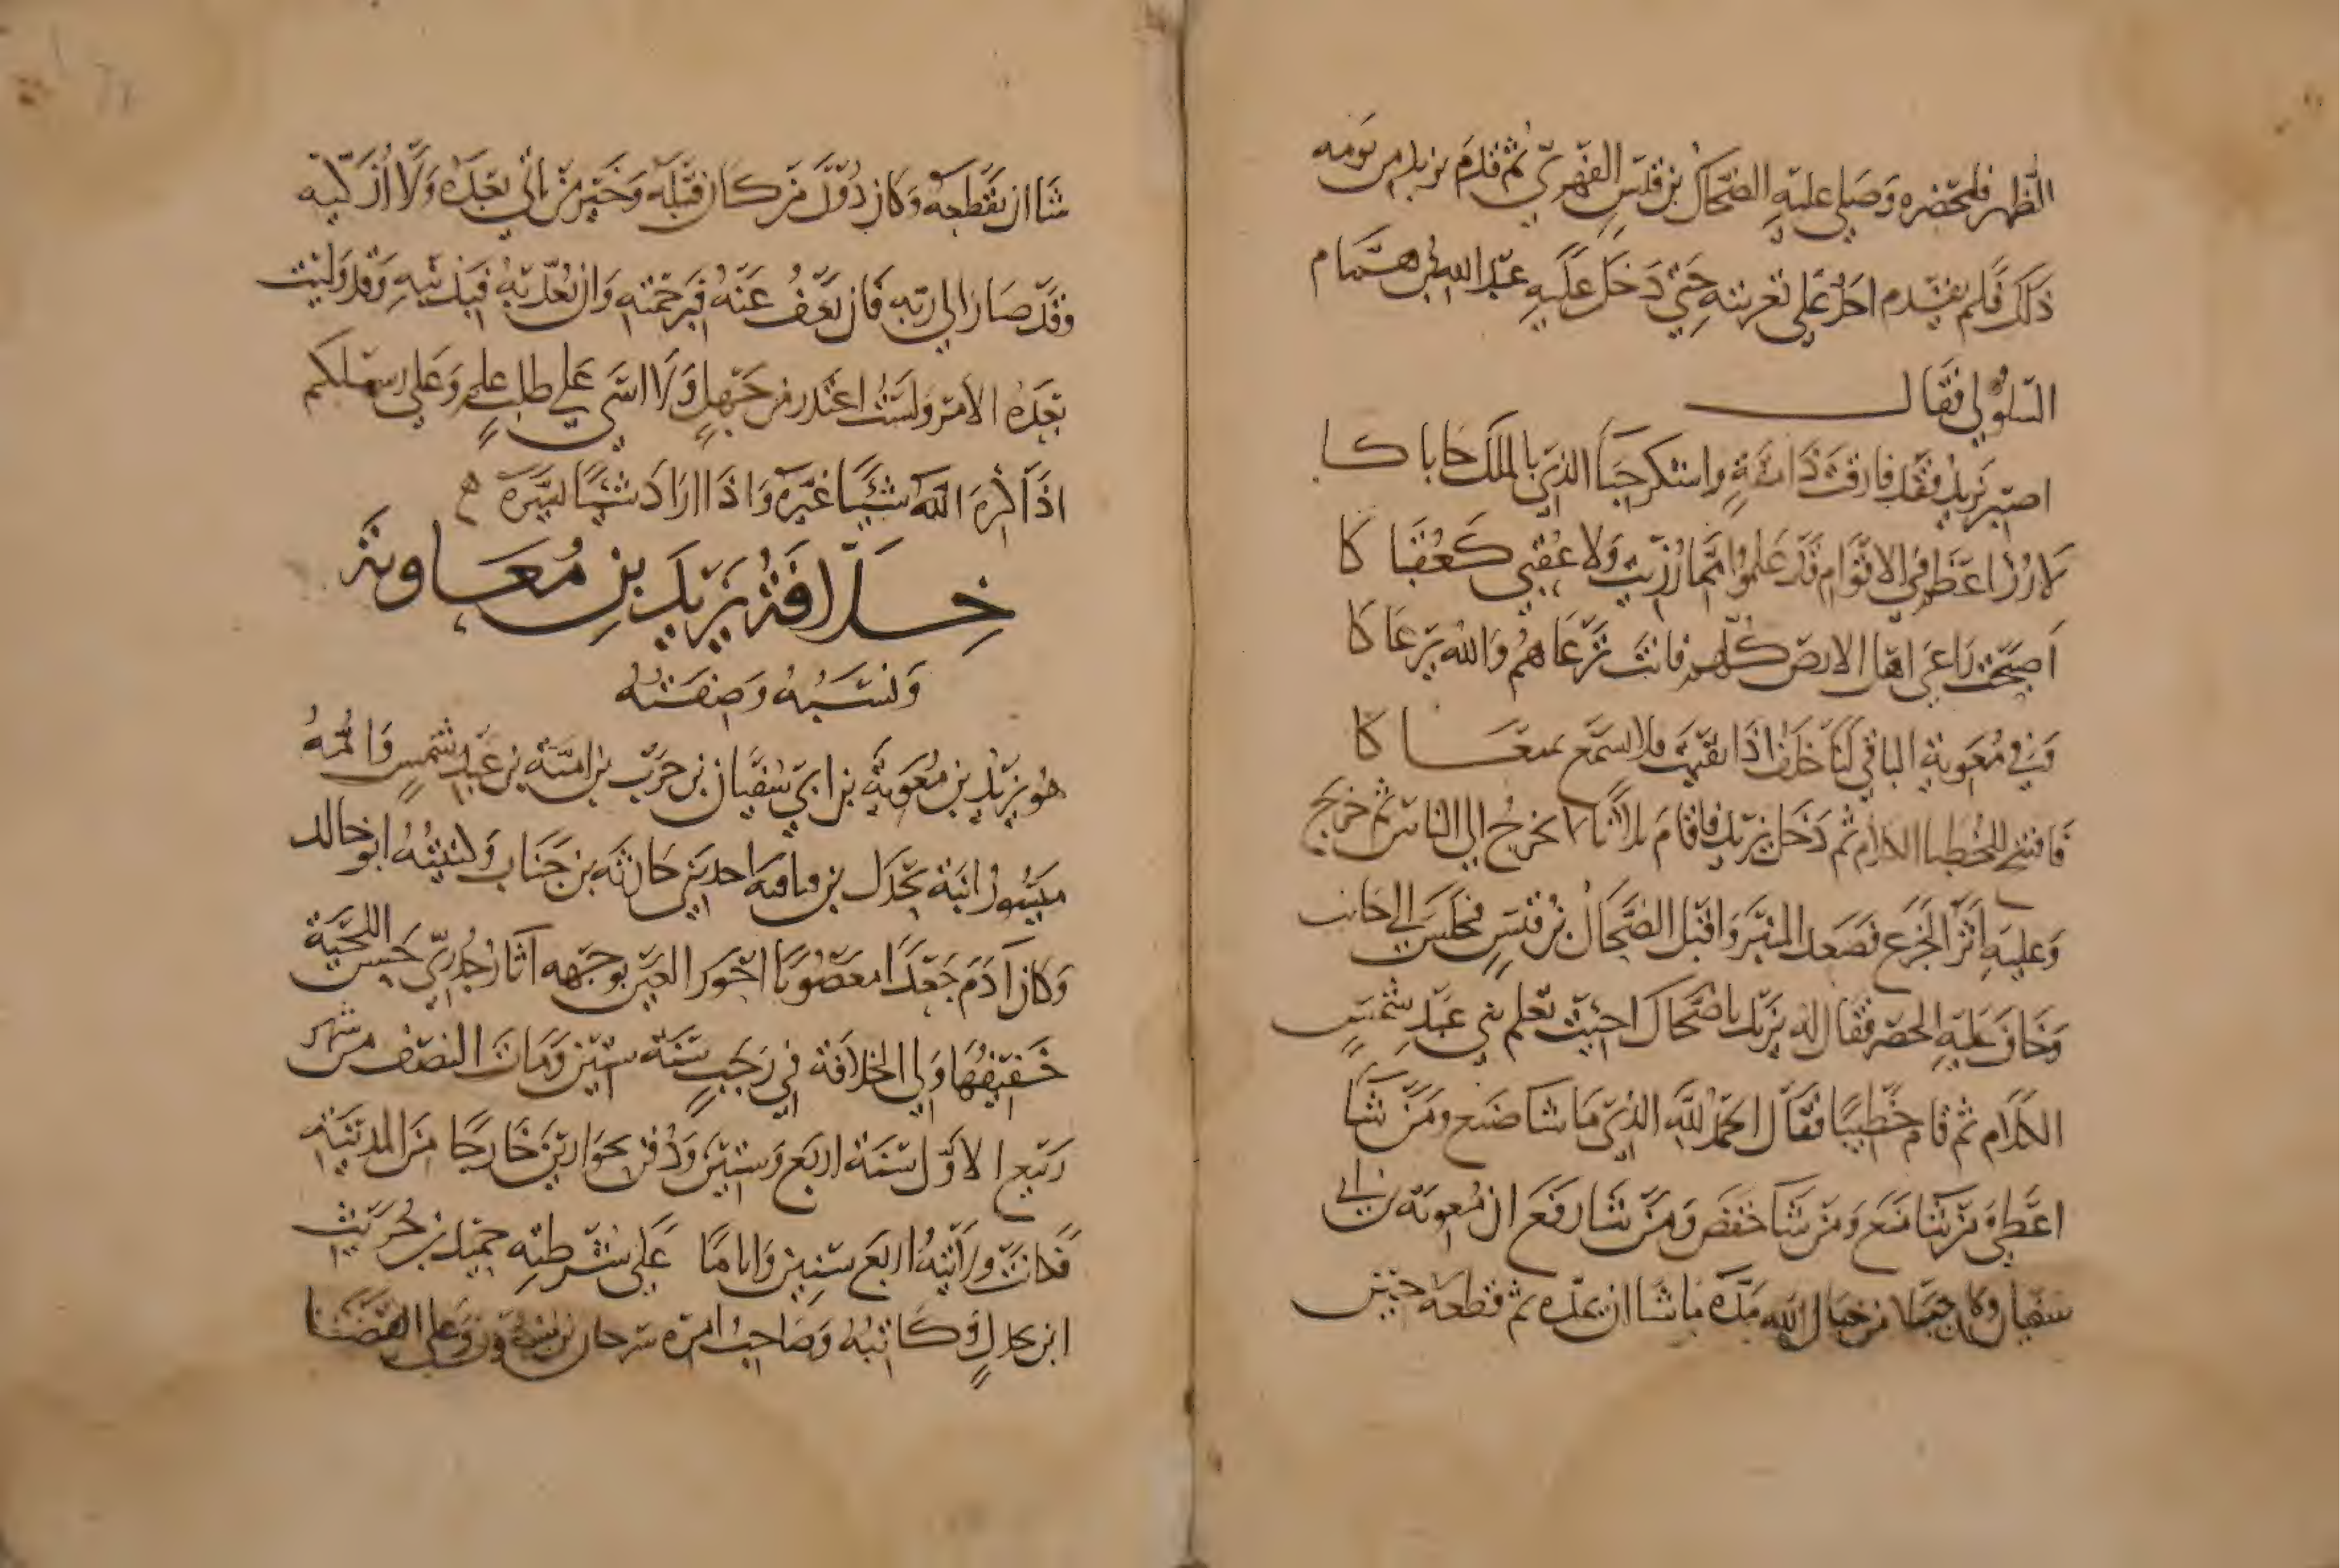 الظهر فلم يحضره وصلى عليه الضحاك بن قيس الفهري ثم قدم يزيد من يومه
ذلك فلم يقدم احد على تعزيته حتى دخل عليه عبد الله بن همام
السلولي فقال
اصبر يزيد فقد فارقت ذا مقة واشكر حبا الذي بالملك حاباكا
لا رزا اعظم في الاقوام قد علموا مما رزيت ولا عقبى كعقباكا
اصبحت راعي اهل الارض كلهم فانت ترعاهم والله يرعاكا
وفي معوية الباقي لنا خلف اذا بقيت فلا نسمع بمنعاكا
فافتتح الخطبا الكلام ثم دخل يزيد فاقام ثلاثا لا يخرج الى الناس ثم خرج
وعليه اثر الجزع فصعد المنبر واقبل الضحاك بن قيس فجلس الى جانب
وخاف عليه الحصر فقال له يزيد يا ضحاك اجيت تعلم بني عبد شمس
الكلام ثم قام خطيبا فقال الحمد لله الذي ما شا صنع ومن شا
اعطى ومن شا منع ومن شا خفض ومن شا رفع ان معوية بن ابي
سفيان كان حبلا من حبال الله مده ما شا ان يمده ثم قطعه حين
شا ان يقطعه وكان دون من كان قبله وخير من ياتي بعده ولا ازكيه
وقد صار الى ربه فان يعف عنه فبرحمته وان يعذبه فبذنبه وقد وليت
بعده الامر ولست اعتذر من جهل ولا اسى على طلب علم وعلى رسلكم
اذا كره الله شيئا غيره واذا اراد شيئا يسره
خلافة يزيد بن معاوية
ونسبه وصفته
هو يزيد بن معوية بن ابي سفيان بن حرب بن امية بن عبد شمس وامه
ميسون ابنة بحدل بن احد بني حارثة بن جناب وكنيته ابو خالد
وكان آدم جعدا معصوبا احور العين بوجهه آثار جدري حسن اللحية
خفيفها ولي الخلافة في رجب سنة ستين ومات النصف من شهر
ربيع الاول سنة اربع وستين ودفن بحوارين خارجا من المدينة
فكانت ولايته اربع سنين واياما على شرطته حميد بن حريث
ابن بحدل وكاتبه وصاحب امره سرجان بن منصور وعلى القضا